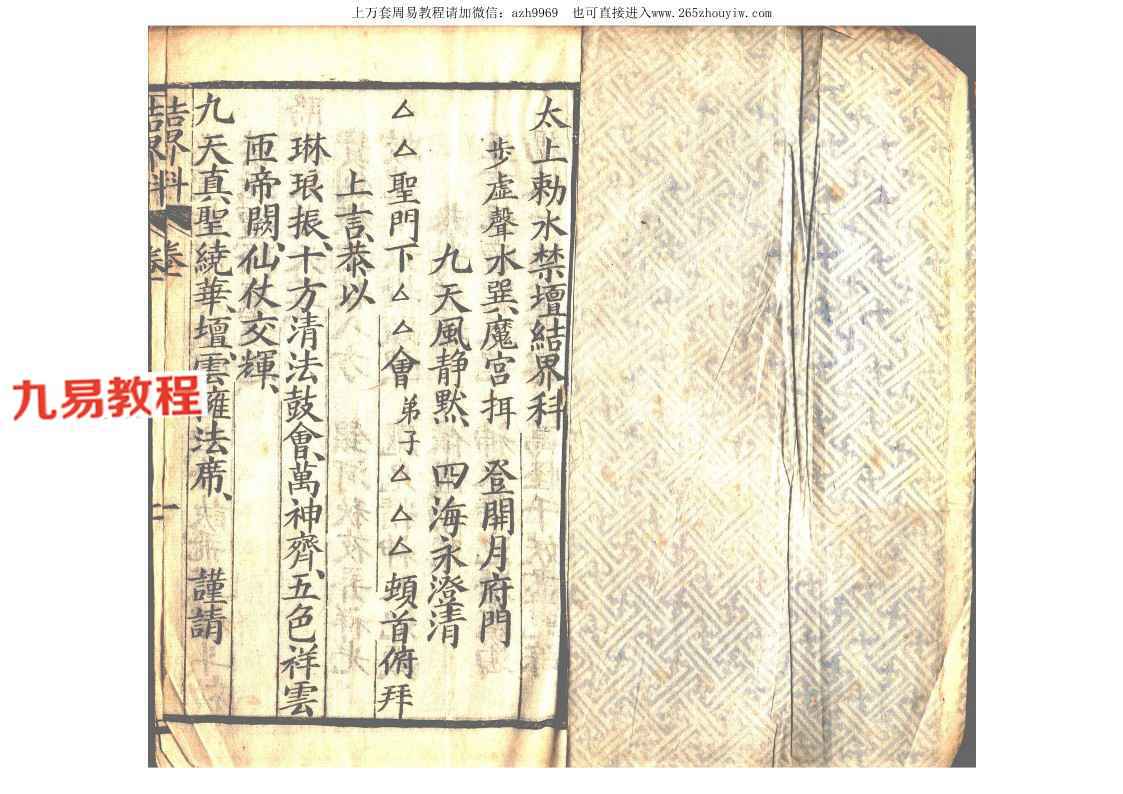 上万套周易教程请加微信：azh9969　也可直接进入www.265zhouyiw.com
太上勅水禁壇結界科
步虛聲水巽、魔宫揖　登開月府門
九天風静默、四海永澄清
△△聖門下△△會弟子△△△頓首俯拜
上言、恭以
琳琅振、十方清法鼓會、萬神齊、五色祥雲
匝帝闕、仙仗交輝、
九天真聖繞華、壇、雲擁法席、　謹請
結界科　一
九易教程